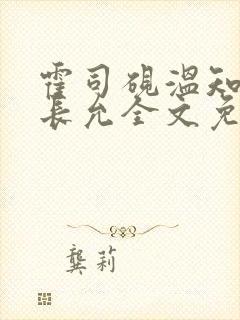 霍司砚温知
长允全文免
龚莉